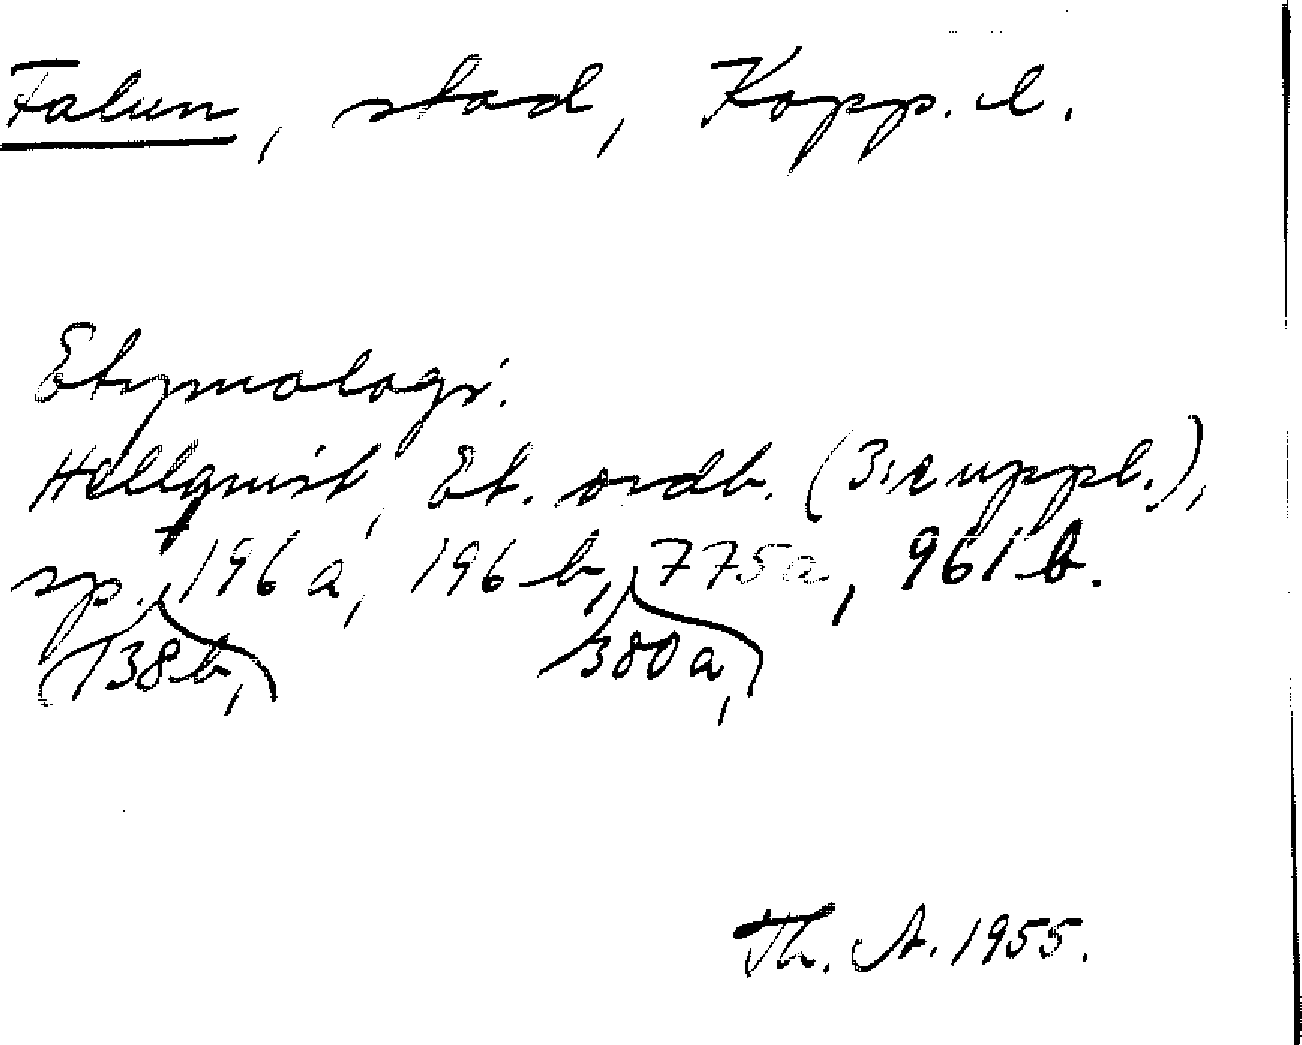 Falun, stad, Kopp. l.
Etymologi.
Hellquist, Et. ordb. (3:e uppl.),
sp. 196 a, 196 b, 775a, 961 b.
138b, 380a,
Th. A. 1955.